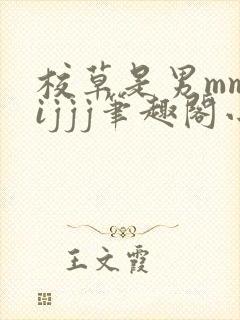 校草是男mm
ijjj笔趣阁小
王文霞